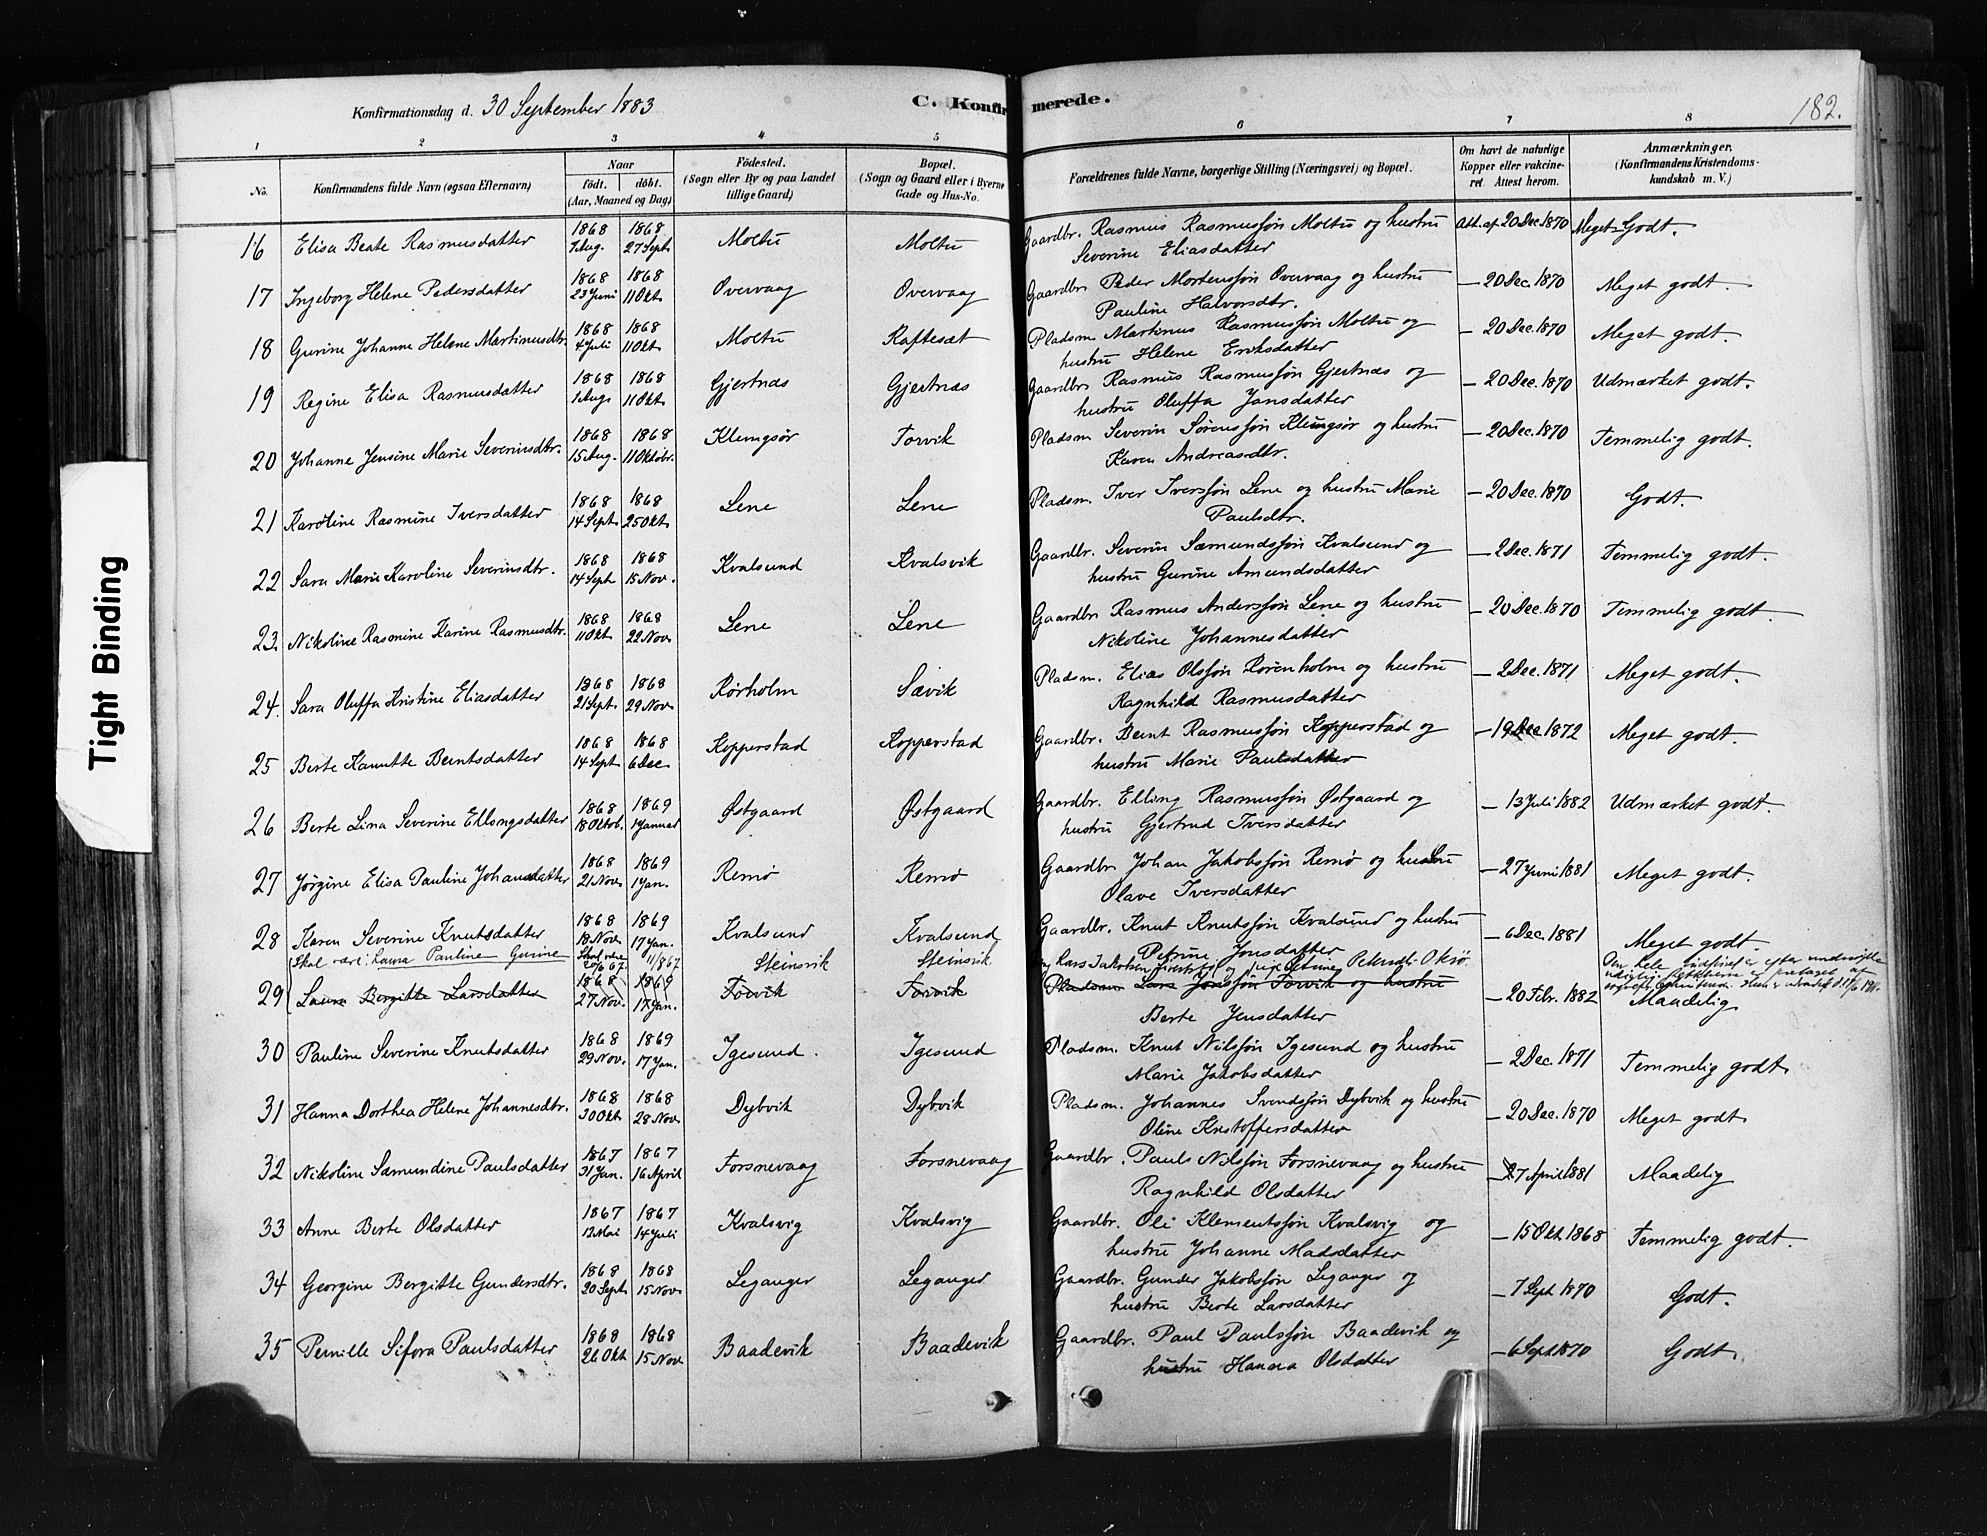 Konfirmationsdag d. 30 September 1883
C. Konfirmerede.
182.
1 2 3 4 5 6 7 8
No. Konfirmandens fulde Navn (ogsaa Efternavn) Naar födt. döbt. (Aar, Maaned og Dag) Födested. (Sogn eller By og paa Landet tillige Gaard) Bopæl. (Sogn og Gaard eller i Byerne Gade og Hus-No. Forældrenes fulde Navne, borgerlige Stilling (Næringsvei) og Bopæl. Om havt de naturlige Kopper eller vakcineret. Attest herom. Anmærkninger. (Konfirmandens Kristendomskundskab m. V.)
16 Elisa Beate Rasmusdatter 1868 1 Aug. 1868 27 Sept. Moltu Moltu Gaardbr. Rasmus Rasmussøn Moltu og hustru Att. af 20 Dec 1870 Meget Godt.
Severine Eliasdatter
17 Ingeborg Helene Pedersdatter 1868 23 Juni 1868 11 Okt Overvaag Overvaag Gaardbr Peder Mortenssøn Overvaag og hustru — 20 Dec. 1870 Meget godt.
Pauline Halvorsdtr.
18 Gurine Johanne Helene Martinusdtr. 1868 4 Juli 1868 11 Okt Moltu Raftesæt Pladsm Martinus Rasmussøn Moltu og — 20 Dec. 1870 Meget godt.
hustru Helene Eriksdatter
19 Regine Elisa Rasmusdatter 1868 1 Aug. 1868 11 Okt. Gjertnæs Gjertnæs Gaardbr Rasmus Rasmussøn Gjertnæs og — 20 Dec. 1870 Udmærket godt.
hustru Oluffa Jansdatter
20 Johanne Jensine Marie Severinsdtr. 1868 15 Aug. 1868 11 Oktobr. Klungsør Torvik Pladsm Severin Sørenssøn Klungsør og hustru — 20 Dec. 1870 Temmelig godt.
Karen Andreasdtr.
21 Karoline Rasmine Iversdatter 1868 14 Sept. 1868 25 Okt Lene Lene Pladsm. Iver Iverssøn Lene og hustru Marie — 20 Dec. 1870 Godt.
Paulsdtr.
22 Sara Marie Karoline Severinsdtr. 1868 14 Sept 1868 15 Nov. Kvalsund Kvalsvik Gaardbr. Severin Sæmundssøn Kvalsund og — 2 Dec. 1871 Temmelig godt.
hustru Gurine Amundsdatter
23. Nikoline Rasmine Karine Rasmusdtr. 1868 11 Okt. 1868 22 Nov Lene Lene Gaardbr Rasmus Anderssøn Lene og hustru — 20 Dec. 1870 Temmelig godt.
Nikoline Johannesdatter
24. Sara Oluffa Kristine Eliasdatter 1868 21 Sept. 1868 29 Nov Rørholm Sævik Pladsm. Elias Olssøn Rørenholm og hustru — 2 Dec. 1871 Meget godt.
Ragnhild Rasmusdatter
25 Berte Kanutte Berntsdatter 1868 14 Sept 1868 6 Dec Kopperstad Kopperstad Gaardbr. Bernt Rasmussøn Kopperstad og — 19 Dec 1872 Meget godt.
hustru Marie Paulsdatter
26 Berte Lina Severine Ellingsdatter 1868 18 Oktob. 1869 1 Januar Østgaard Østgaard Gaardbr. Elling Rasmussøn Østgaard og — 13 Juli 1882 Udmærket godt.
hustru Gjertrud Iversdatter
27 Jørgine Elisa Pauline Johansdatter 1868 21 Nov. 1869 1 Jan. Remø Remø Gaardbr Johan Jakobssøn Remø og hustru — 27 Juni 1881 Meget godt.
Olave Iversdatter
28 Karen Severine Knutsdatter 1868 18 Nov 1869 17 Jan. Kvalsund Kvalsund Gaardbr. Knut Knutssøn Kvalsund og hustru — 6 Dec. 1881 Meget godt.
Petrine Jonsdatter
Skal være: Laura Pauline Gurine Skal være 20/6 67 11/8 67 Steinsvik Steinsvik Lars Jakobsen og Petrine Petersdtr.
29 Laura Bergitte Larsdatter 1868 27 Nov. 1869 17 Jan. Torvik Torvik Pladsm Lars Jonssøn Torvik og hustru — 20 Febr. 1882 Maadelig
Berte Jensdatter
30 Pauline Severine Knutsdatter 1868 29 Nov. 1869 17 Jan. Igesund. Igesund Pladsm. Knut Nilssøn Igesund og hustru — 2 Dec. 1871 Temmelig godt.
Marie Jakobsdatter
31 Hanna Dorthea Helene Johannesdtr. 1868 30 Okt 1868 28 Nov Dybvik Dybvik Pladsm. Johannes Svendsøn Dybvik og hustru — 20 Dec. 1870 Meget godt
Oline Kristoffersdatter
32 Nikoline Sæmundine Paulsdatter 1867 31 Jan. 1867 16 April Forsnevaag Forsnevaag Gaardbr. Pauls Nilssøn Forsnevaag og hustru — 27 April 1881 Maadelig
Ragnhild Olsdatter
33 Anne Berte Olsdatter 1867 12 Mai 1867 14 Juli Kvalsvig Kvalsvig Gaardbr. Ole Klementssøn Kvalsvig og — 15 Okt. 1868 Temmelig godt.
hustru Johanne Madsdatter
34 Georgine Bergitte Gundersdtr. 1868 20 Sept. 1868 15 Nov Leganger Leganger Gaardbr. Gunder Jakobssøn Leganger og — 7 Sept 1870 Godt.
hustru Berte Larsdatter
35 Pernille Sifora Paulsdatter 1868 26 Okt 1868 15 Nov Baadevik Baadevik Gaardbr. Paul Paulssøn Baadevik og — 6 Sept 1870 Godt.
hustru Hanna Olsdatter
Tight Binding